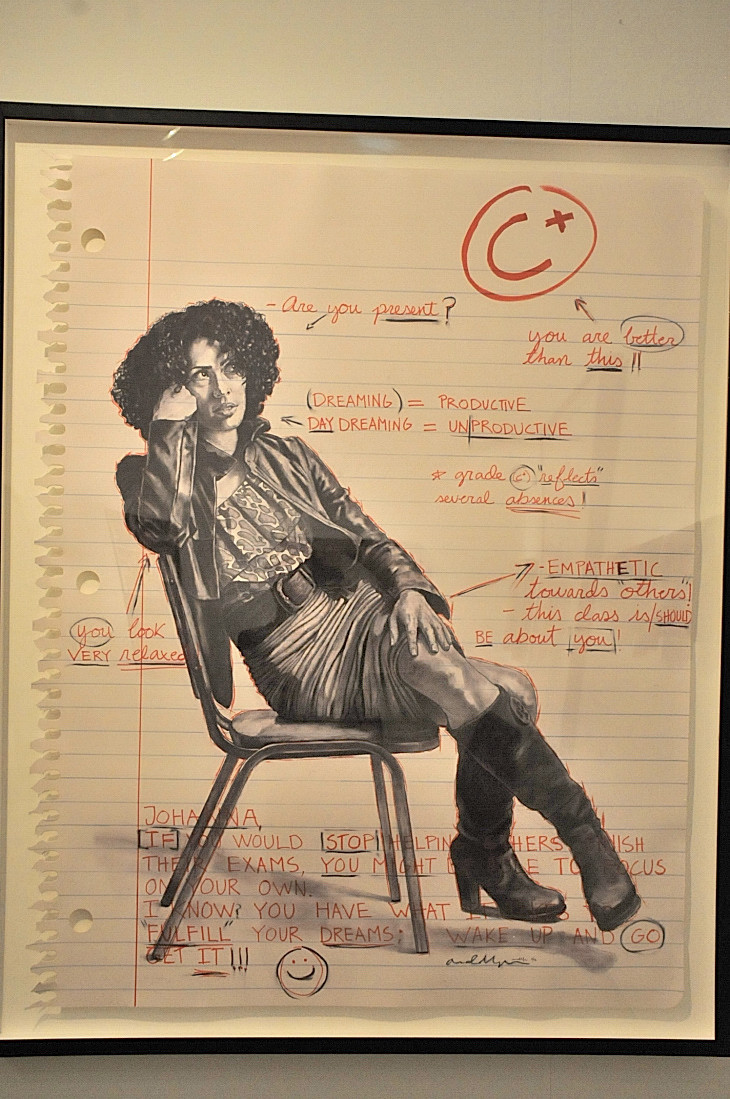 C+
- Are you present?
you are better
than this!!
(DREAMING) = PRODUCTIVE
DAYDREAMING = UNPRODUCTIVE
* grade (C+) "reflects"
several absences!
- EMPATHETIC
towards "others"!
- this class is/SHOULD
BE about you!
you look
VERY relaxed
JOHANNA,
IF YOU WOULD STOP HELPING OTHERS FINISH
THEIR EXAMS, YOU MIGHT BE ABLE TO FOCUS
ON YOUR OWN.
I KNOW? YOU HAVE WHAT IT TAKES TO
"FULFILL" YOUR DREAMS; WAKE UP AND GO
GET IT!!!